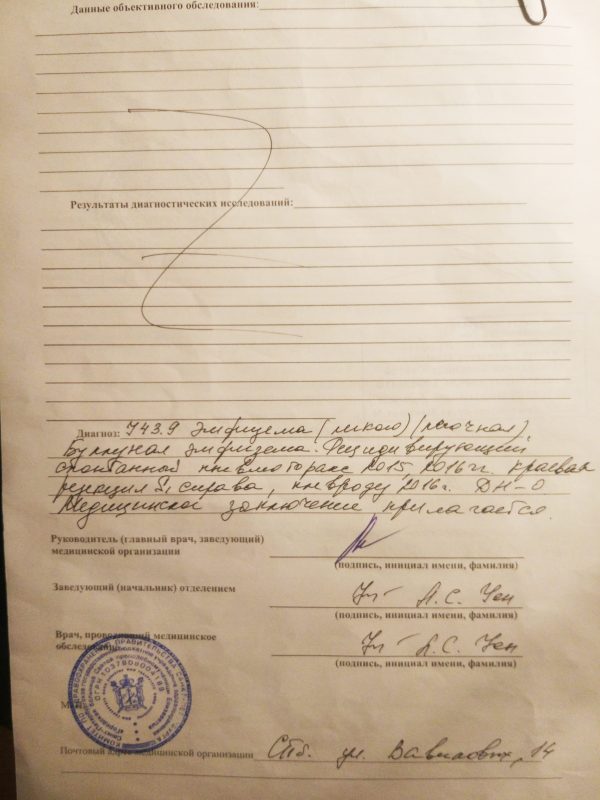 Данные объективного обследования:
Результаты диагностических исследований:
Диагноз: J43.9 Эмфизема (легкого) (легочная)
Буллезная эмфизема. Рецидивирующий
спонтанный пневмоторакс 2015, 2016гг. краевая
резекция S1 справа, плевродез 2016г. ДН-0
Медицинское заключение прилагается.
Руководитель (главный врач, заведующий)
медицинской организации
(подпись, инициал имени, фамилия)
Заведующий (начальник) отделением
А.С. Чен
(подпись, инициал имени, фамилия)
Врач, проводящий медицинское
обследование
А.С. Чен
(подпись, инициал имени, фамилия)
Почтовый адрес медицинской организации СПб. ул. Вавиловых, 14